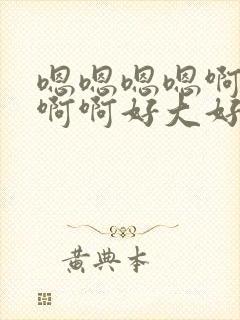 嗯嗯嗯嗯啊
啊啊好大好
黄典本